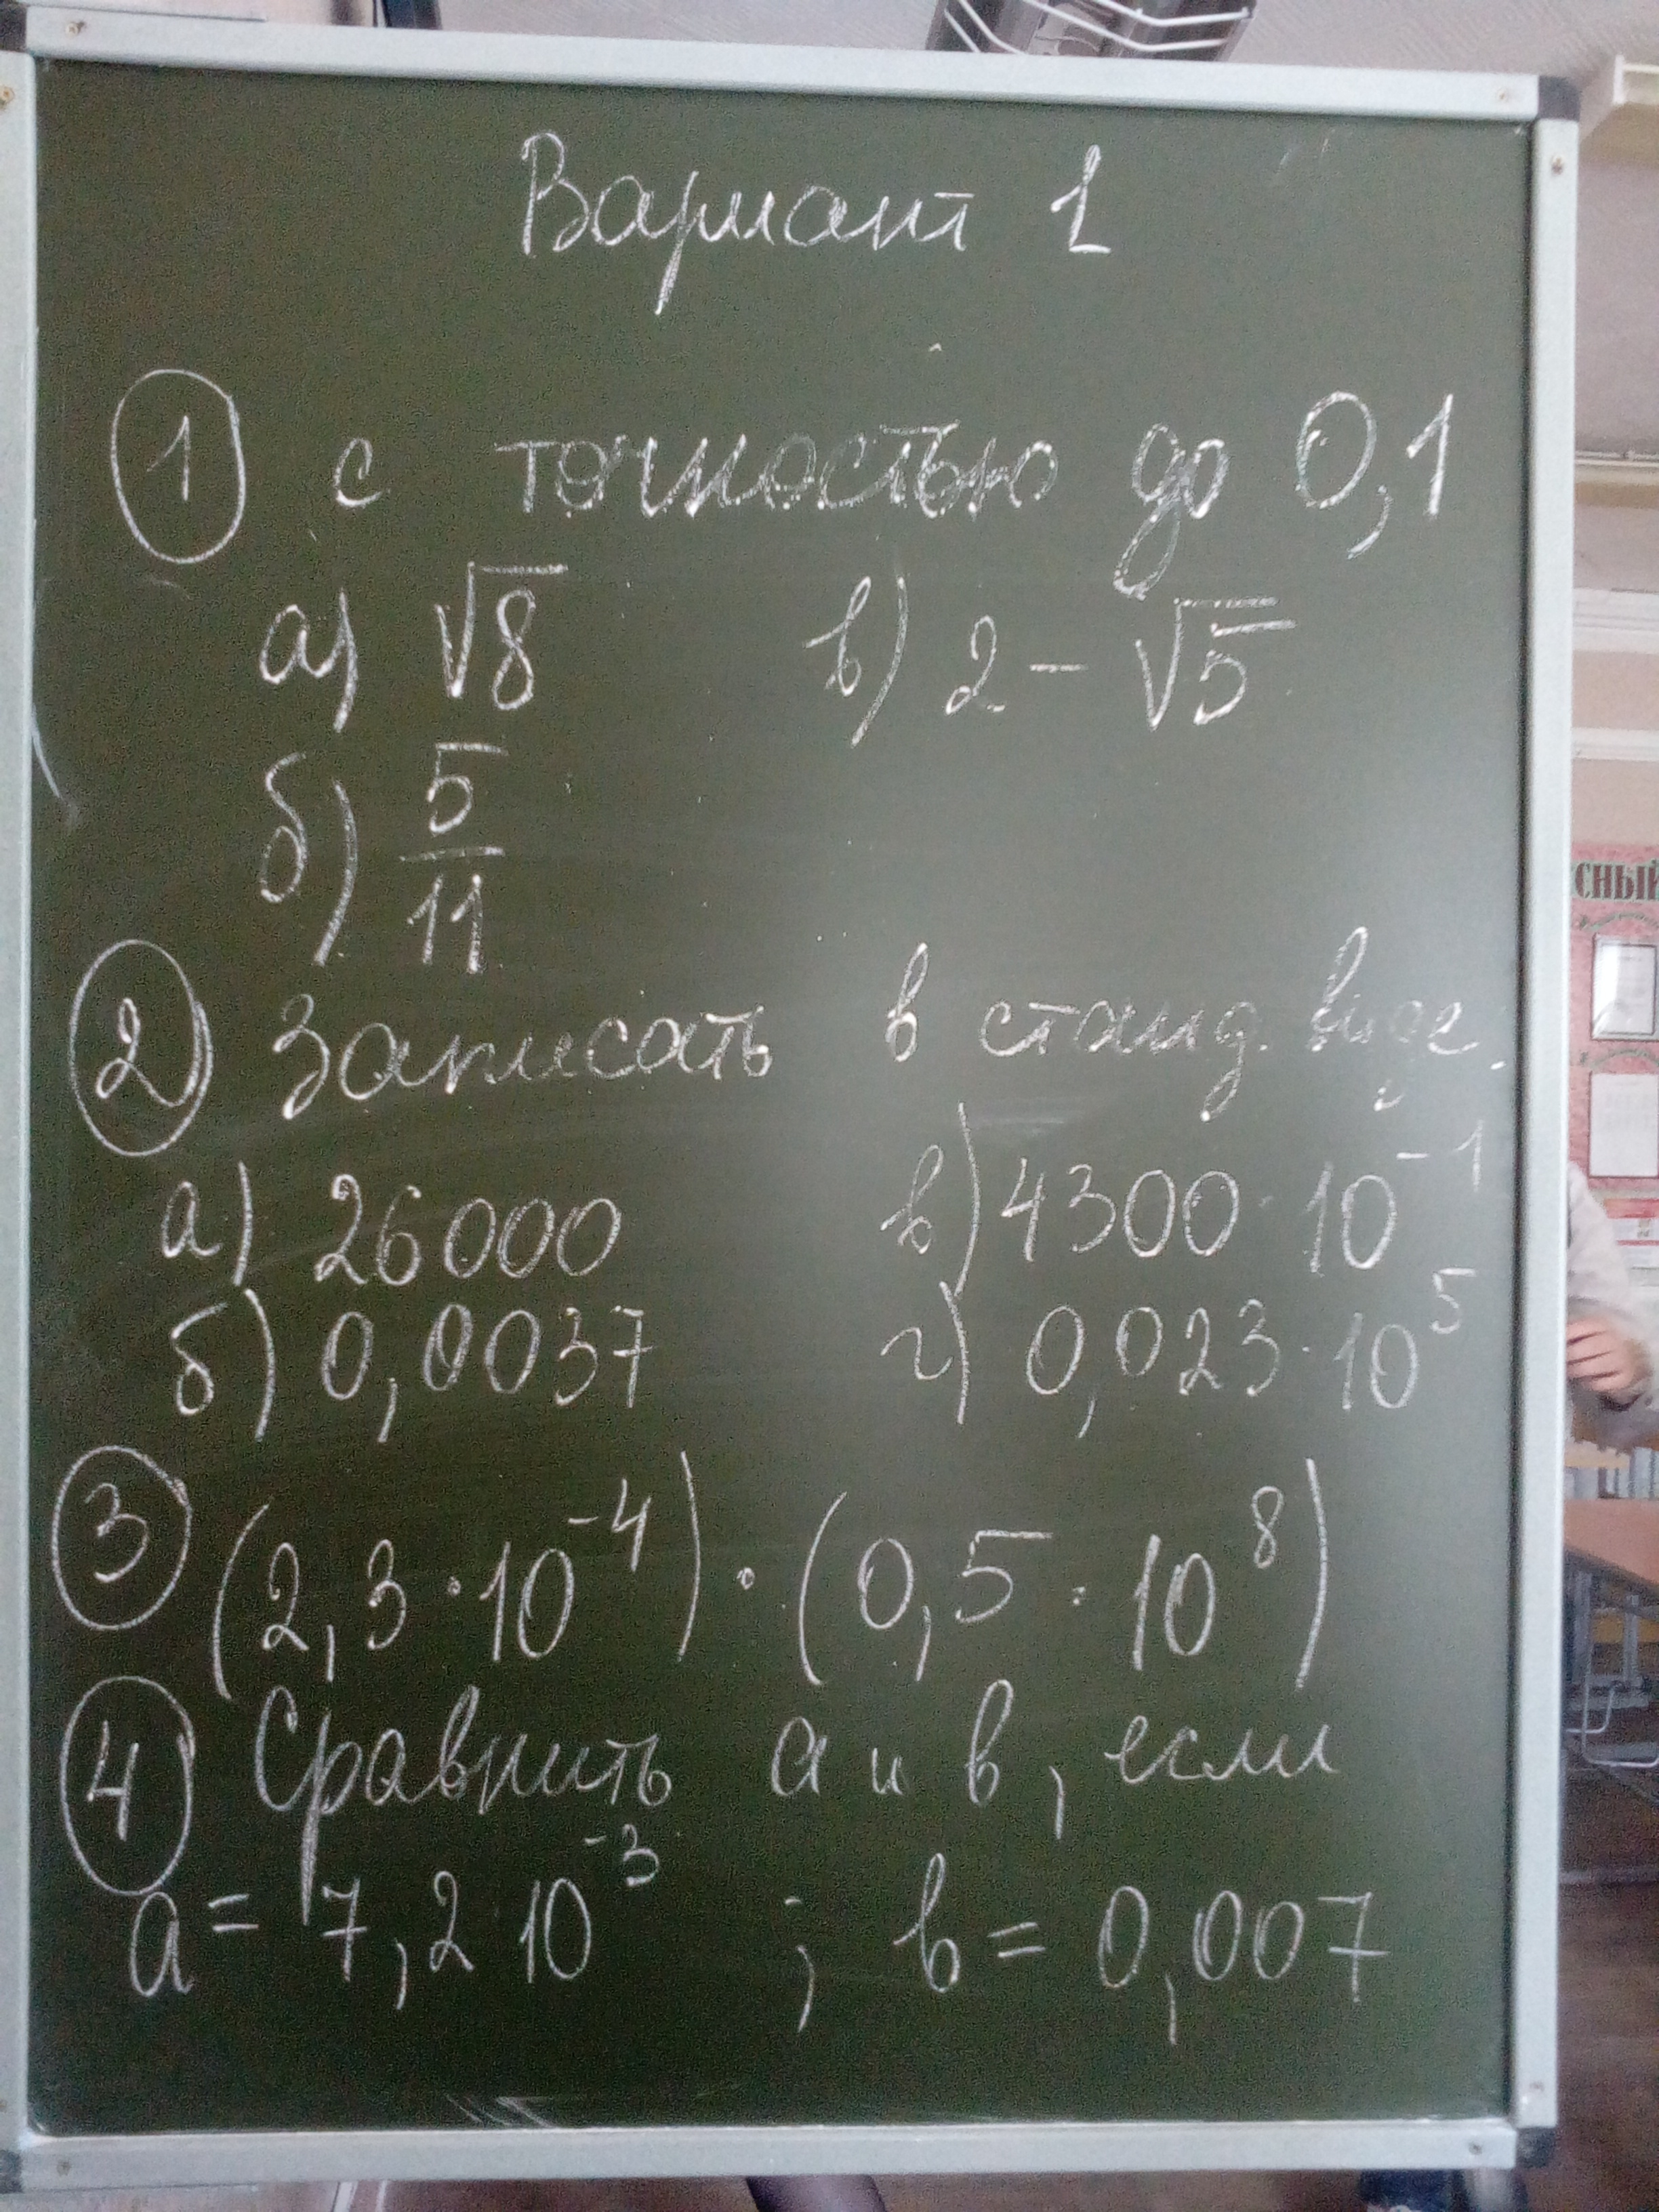 Вариант 1
① с точностью до 0,1
а) √8 в) 2 - √5
б) 5/11
② Записать в станд. виде.
а) 26000 в) 4300 · 10⁻¹
б) 0,0037 г) 0,023 · 10⁵
③ (2,3 · 10⁻⁴) · (0,5 · 10⁸)
④ Сравнить а и в, если
а = 7,2 10⁻³ ; в = 0,007
СНЫЙ